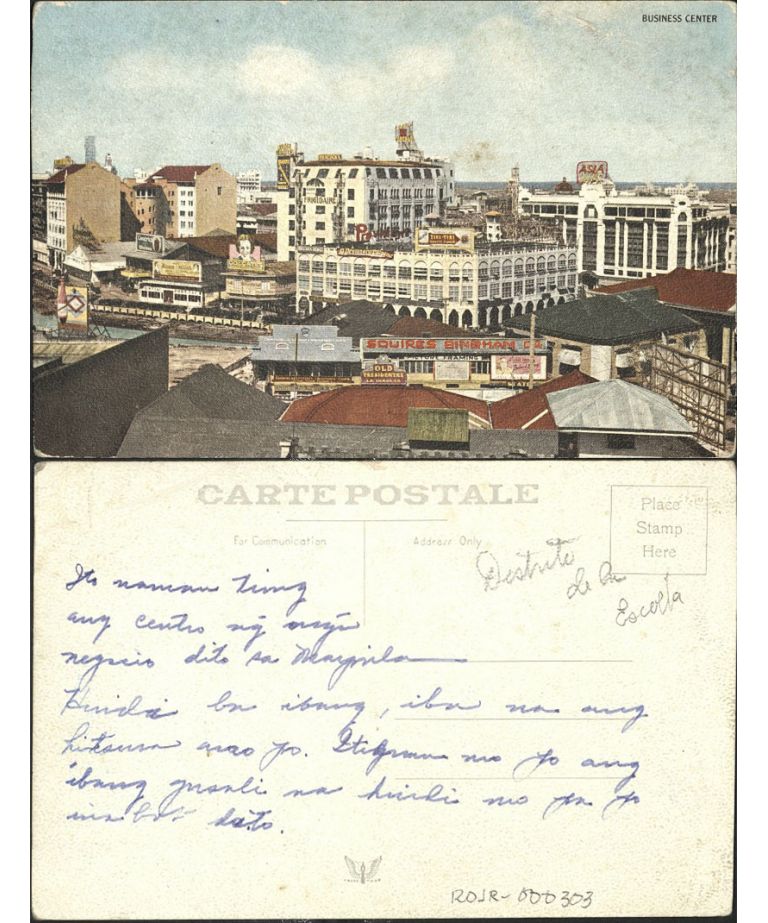 BUSINESS CENTER
ASIA
FRIGIDAIRE
SQUIRES BINGHAM CO.
PICTURE FRAMING
OLD
PRESIDENTES
CARTE POSTALE
For Communication
Address Only
Place
Stamp
Here
Distrito
de la
Escolta
Ito naman
ang centro ng
negocio dito sa Maynila
Hindi ba ibang, iba na ang
hitsura po. Itignan mo po ang
ibang na hindi mo pa po
dito.
ROJR-000303